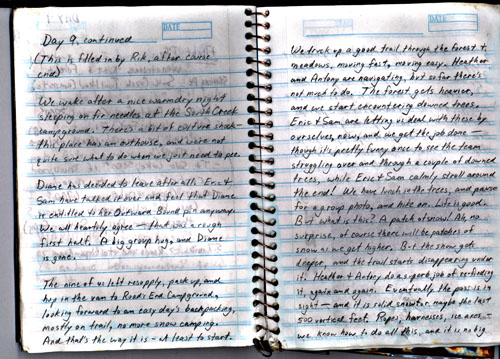 DATE
Day 9, continued
(This is filled in by Rik, after course
end)
We wake after a nice warm dry night
sleeping on fir needles at the South Creek
campground. There's a bit of culture shock -
this place has an outhouse, and we're not
quite sure what to do when we just need to pee.
Diane has decided to leave after all. Eric +
Sam have talked it over and feel that Diane
is entitled to her Outward Bound pin anyway.
We all heartily agree - that was a rough
first half. A big group hug, and Diane
is gone.
The nine of us left resupply, pack up, and
hop in the van to Road's End Campground,
looking forward to an easy day's backpacking,
mostly on trail, no more snow camping.
And that's the way it is - at least to start.
DATE
We truck up a good trail through the forest +
meadows, moving fast, moving easy. Heather
and Antony are navigating, but so far there's
not much to do. The forest gets heavier,
and we start encountering downed trees.
Eric + Sam are letting us deal with these by
ourselves, now, and we get the job done -
though it's pretty funny once to see the team
struggling over and through a couple of downed
trees, while Eric + Sam calmly stroll around
the end! We have lunch in the trees, and pause
for a group photo, and hike on. Life is good.
But what is this? A patch of snow! Ah, no
surprise, of course there will be patches of
snow as we get higher. But the snow gets
deeper, and the trail starts disappearing under
it. Heather + Antony do a superb job of refinding
it, again and again. Eventually the pass is in
sight - and it is solid snow for maybe the last
500 vertical feet. Ropes, harnesses, ice axes -
we know how to do all this, and it is no big